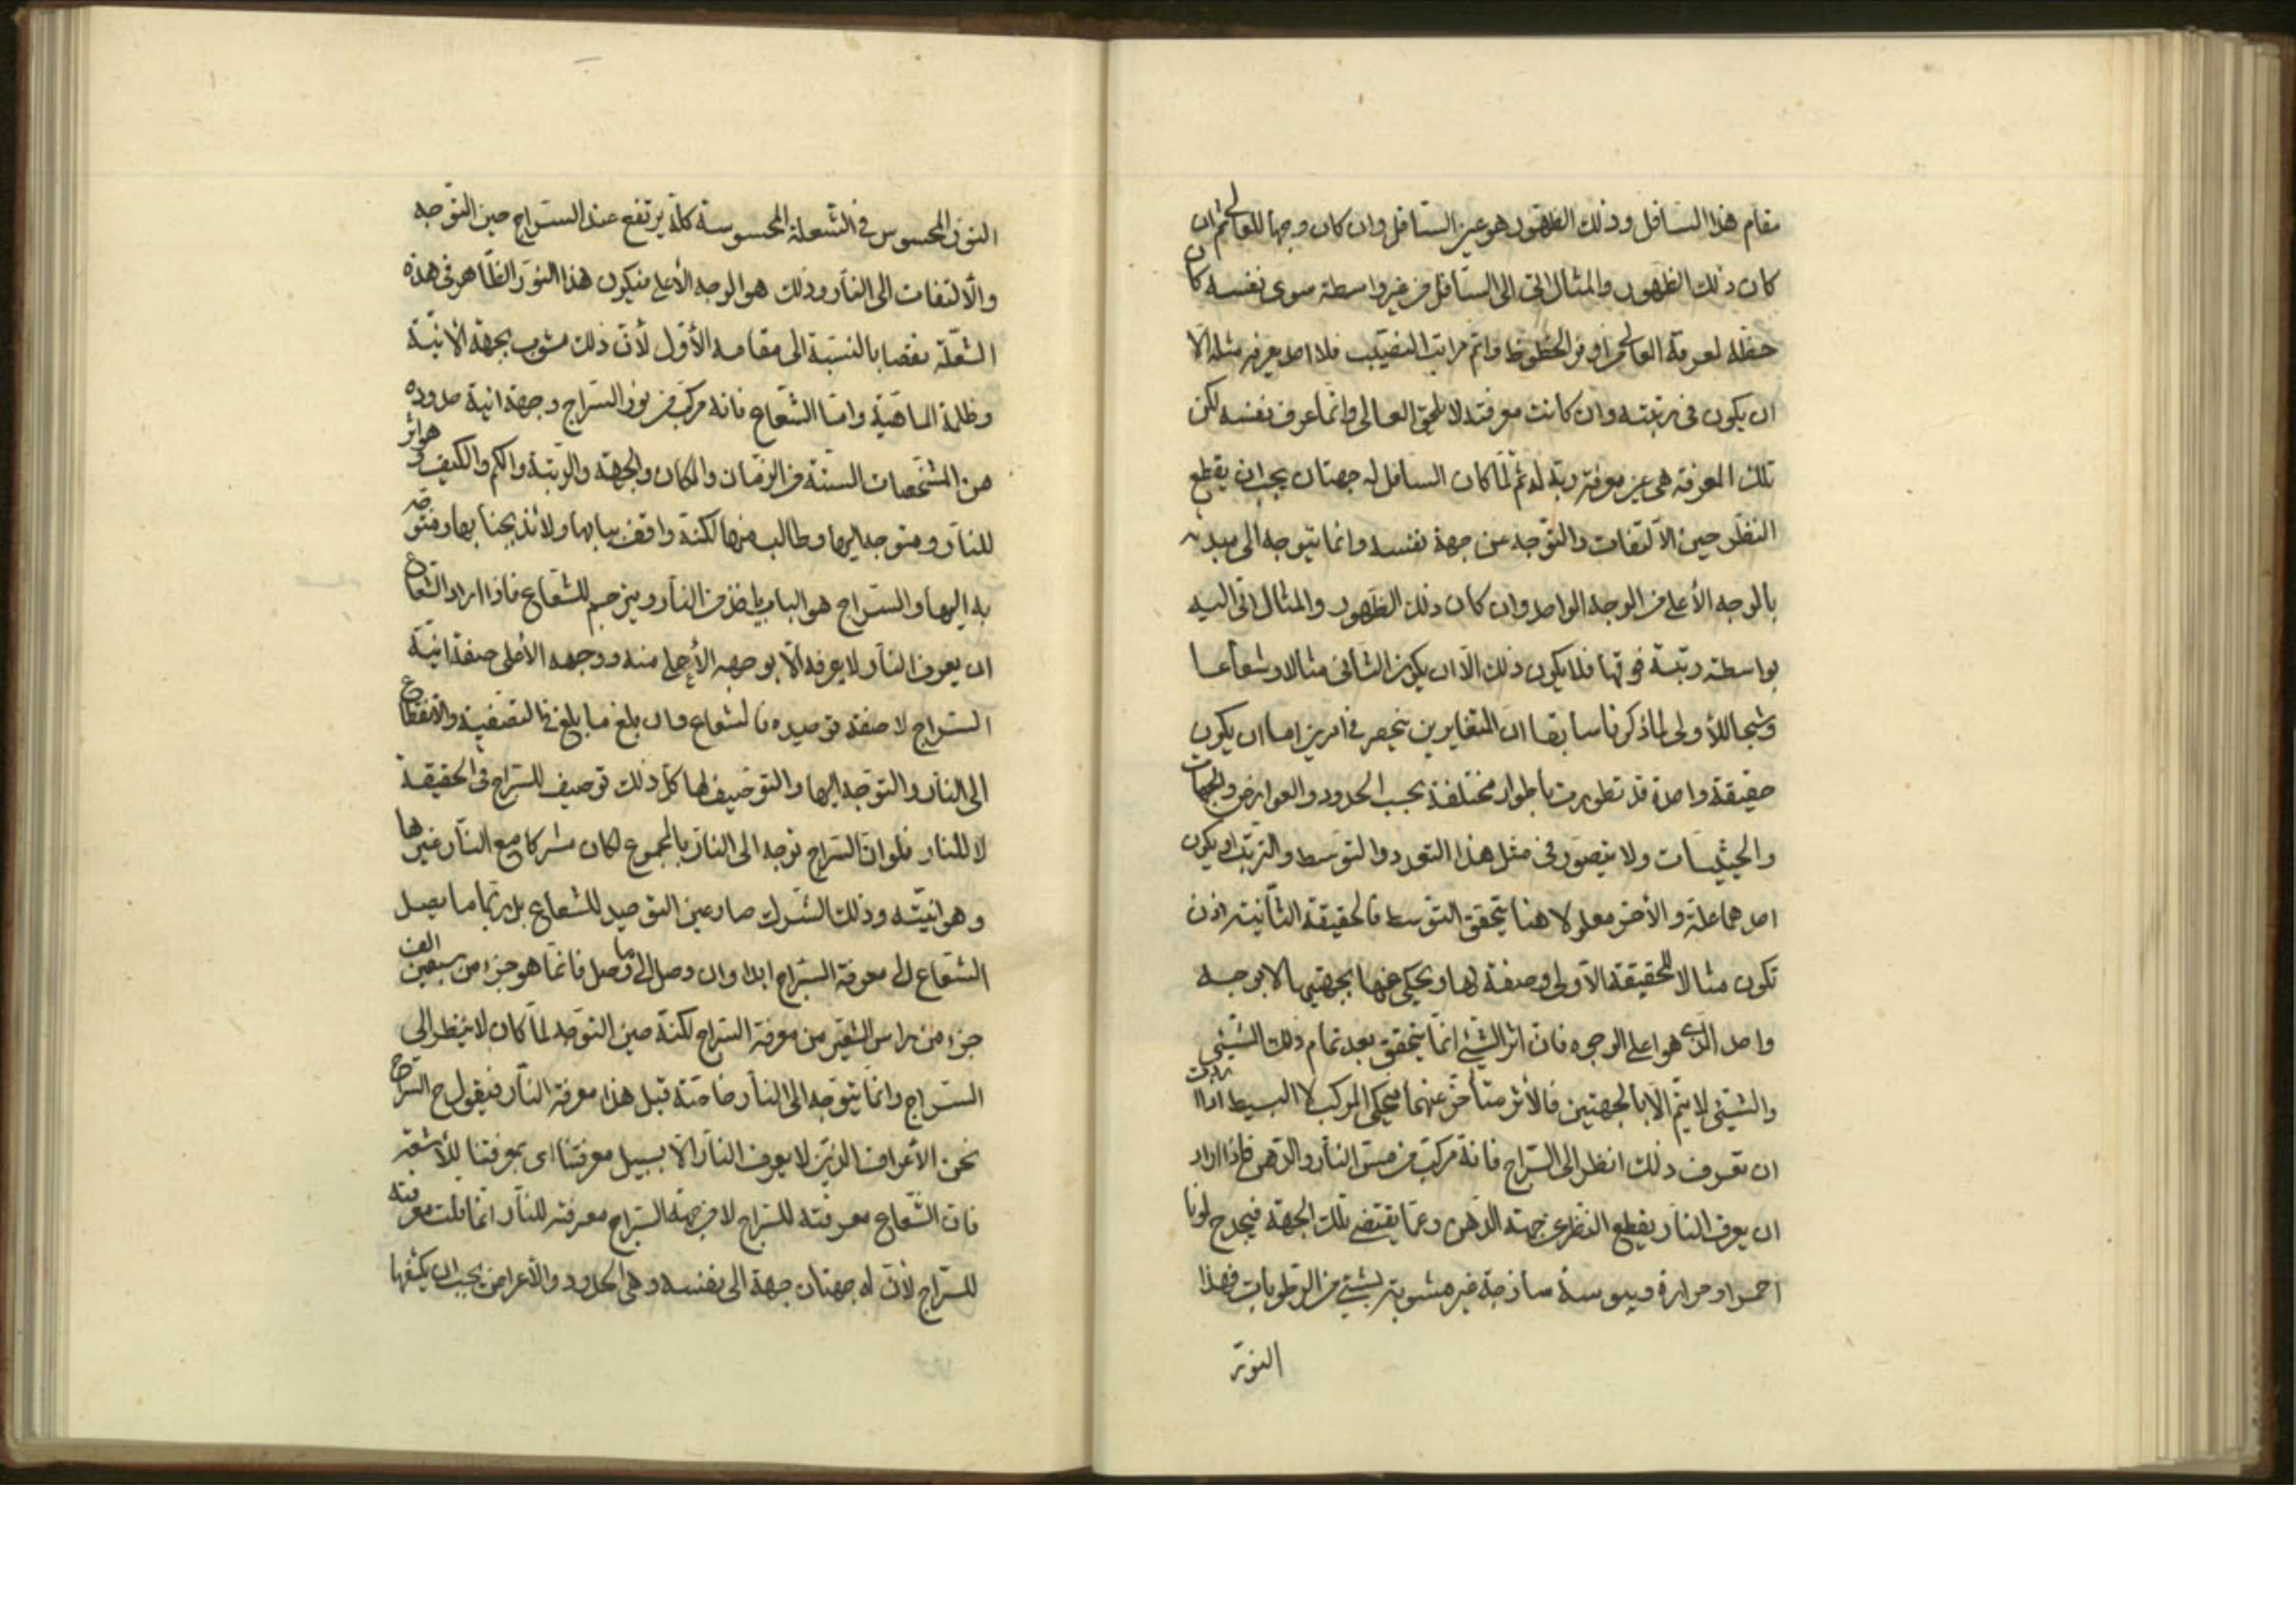 مقام هذا السافل وذلك الظهور هو عين السافل وان كان وجها للعالي ثم ان
كان ذلك الظهور والمثال اتى الى السافل من غير واسطة سوى نفسه كان
حظه لمعرفة العالي اوفر الحظوظ واتم مراتب النصيب فلا احد يعرفه مثله الا
ان يكون في رتبته وان كانت معرفته لا تلحق العالي وانما عرف نفسه لكن
تلك المعرفة هي عين معرفة ربه له ثم لما كان السافل له جهتان يجب ان يقطع
النظر حين الالتفات والتوجه عن جهة نفسه وانما يتوجه الى مبدئه
بالوجه الأعلى من الوجه الواحد وان كان ذلك الظهور والمثال اتى اليه
بواسطة رتبة فوقها فلا يكون ذلك الا ان يكون الثاني مثالا وشعاعا
وشبحا للأولى لما ذكرنا سابقا ان المتغايرين ينحصر في امرين اما ان يكون
حقيقة واحدة قد تطورت باطوار مختلفة بحسب الحدود والعوارض والجهات
والحيثيات ولا يتصور في مثل هذا التعدد والتوسط والترتب او يكون
احدهما علة والأخر معلولا هنا يتحقق التوسط فالحقيقة الثانية اذن
تكون مثالا للحقيقة الأولى وصفة لها ويحكي عنها بجهتيها لا بوجه
واحد الذي هو اعلى الوجوه فان اثر الشيء انما يتحقق بعد تمام ذلك الشيء
والشيء لا يتم الا بالجهتين فالأثر متأخر عنهما فيحكي المركب لا البسيط اذا اردت
ان تعرف ذلك انظر الى السراج فانه مركب من مس النار والدهن فاذا اراد
ان يعرف النار يقطع النظر عن جهة الدهن وعما يقتضي تلك الجهة فيجد ح لونا
احمر او حرارة ويبوسة ساذجة غير مشوبة بشيء من الرطوبات فهذا
النور
النور المحسوس في الشعلة المحسوسة كله يرتفع عند السراج حين التوجه
والألتفات الى النار وذلك هو الوجه الأعلى فيكون هذا النور الظاهر في هذه
الشعلة نقصا بالنسبة الى مقامه الأول لأن ذلك مشوب بجهة الأنية
وظلمة الماهية واما الشعاع فانه مركب من نور السراج وجهة انية حدوده
من المشخصات الستة من الزمان والمكان والجهة والرتبة والكم والكيف وهو اثر
للنار ومتوجه اليها وطالب منها لكنه واقف ببابها ولائذ بجنابها ومتوجه
به اليها والسراج هو الباب يأخذ من النار ويترجم للشعاع فاذا اراد الشعاع
ان يعرف النار لا يعرفه الا بوجهه الأعلى منه ووجهه الأعلى صفة انية
السراج لا صفة توحيده فالشعاع وان بلغ ما بلغ في التصفية والانقطاع
الى النار والتوجه اليها والتوصيف لها كل ذلك توصيف للسراج في الحقيقة
لا للنار فلو ان السراج توجه الى النار بالمجموع لكان مشركا مع النار غيرها
وهو انيته وذلك الشرك صار عين التوحيد للشعاع بل ربما ما يصل
الشعاع الى معرفة السراج ابدا وان وصل الى ما وصل فانما هو جزء من سبعين الف
جزء من رأس الشعير من معرفة السراج لكنه حين التوجه لما كان لا ينظر الى
السراج وانما يتوجه الى النار خاصة قبل هذا معرفة النار فيقول ح السراج
نحن الأعراف الذين لا يعرف النار الا بسبيل معرفتنا اي بمعرفتنا للأشعة
فان الشعاع معرفته للسراج لا من جهة السراج معرفته للنار انما قلت معرفته
للسراج لأن له جهتان جهة الى نفسه وهي الحدود والأعراض يجب ان يكشفها